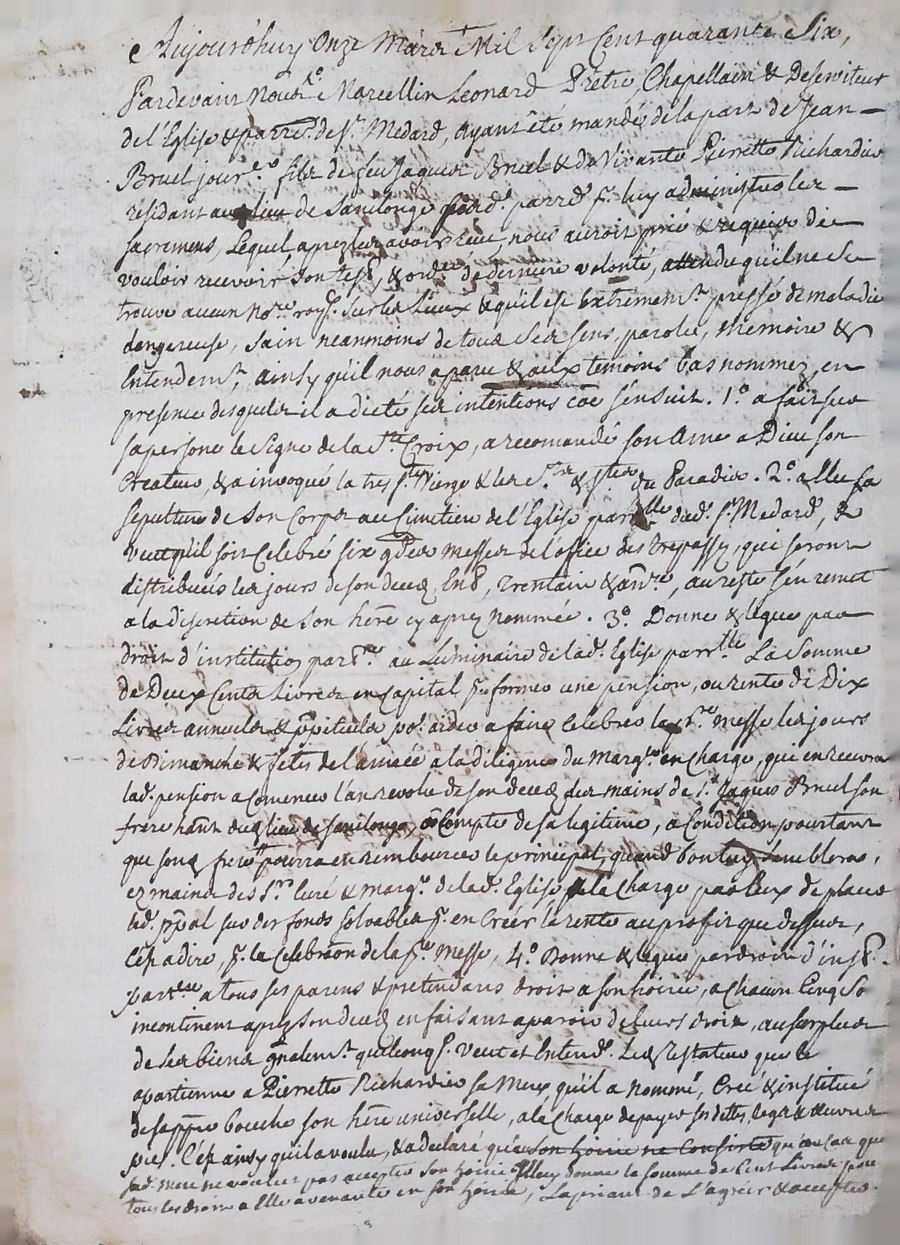 Aujourd'huy Onze Mars Mil Sept Cent quarante Six,
Pardevant Nous Marcellin Leonard Pretre, Chapellain & Deserviteur
de l'Eglise & parr.e de S.t Medard, ayant été mandé de la part de Jean
Bruel fils de feu Jaques Bruel & de Vivante Pierrette Richardier
résidant au lieu de Sanilonge parr.e p.r luy administrer les
sacremens, Lequel apres les avoir receu, nous auroit prié & requis de
vouloir recevoir son test.t & ord.ce de derniere volonté, attendu qu'il ne se
trouve aucun No.re roy.l sur les Lieux & qu'il est Extremem.t pressé de maladie
dangereuse, sain neanmoins de tous ses sens, parole, memoire &
Entendem.t, ainsy qu'il nous a paru & aux temoins bas nommez, en
presence desquels il a dicté ses intentions côe s'ensuit. 1.o a fait sur
sa persone le signe de la S.te Croix, a recomandé son Ame a Dieu son
Createur, & a invoqué la tres S.te Vierge & les S.ts & S.tes du Paradix. 2.o a élu sa
sepulture de son Corps au Cimetiere de l'Eglise parr.lle dud. S.t Medard, &
veut qu'il soit Celebré six messes de l'office des trepassez, qui seront
distribuées les jours de son deces, trentain & an.re, au reste s'en remet
a la discretion de son here cy apres nommée. 3.o Donne & legue par
droit d'institution par.re au Luminaire de lad. Eglise parr.lle La Somme
de Deux Cents Livres en Capital p.r former une pension, ou rente de Dix
Livres annuels & ppetuels po.r aider a faire celebrer la S.te Messe les jours
de Dimanche & fetes de l'année a la diligence du Marg.er en Charge, qui en recevra
lad. pension a comencer l'an revolu de son deces des mains de S.r Jaques Bruel son
frere hant aud. lieu de sanilonge, a Compte de sa legitime, a Condition pourtant
que sond. frere pourra en rembourcer le principal, quand bon luy semblera,
ez mains des S.rs Curé & marg.r de lad. Eglise a la Charge par Eux de placer
led. ppal sur des fonds solvables p.r en Créer la rente au profit que dessus,
C'est a dire, p.r la Celebraon de la S.te Messe, 4.o Donne & legue par droit d'inst.
par.re a tous ses parens & pretendans droit a son hoirie, a Chacun Cinq So
incontinent apres son deces en faisant aparoir de leurs droix, au surplus
de ses biens gnalem.t quelconq.s Veut et Entend Led. Testateur que le
apartienne a Pierrette Richardier sa Mere, qu'il a nommé, Creé & institué
de sa ppre bouche son here universelle, a la Charge de payer ses dettes, legs & oeuvres
pies. C'est ainsy qu'il a voulu, & a declaré que son hoirie ne Consiste qu'au cas que
sad. Mere ne voulut pas accepter son hoirie luy donne la somme de Cent Livres pour
tous les droits a Elle avenants en son hoirie, La priant de L'agréer & accepter.